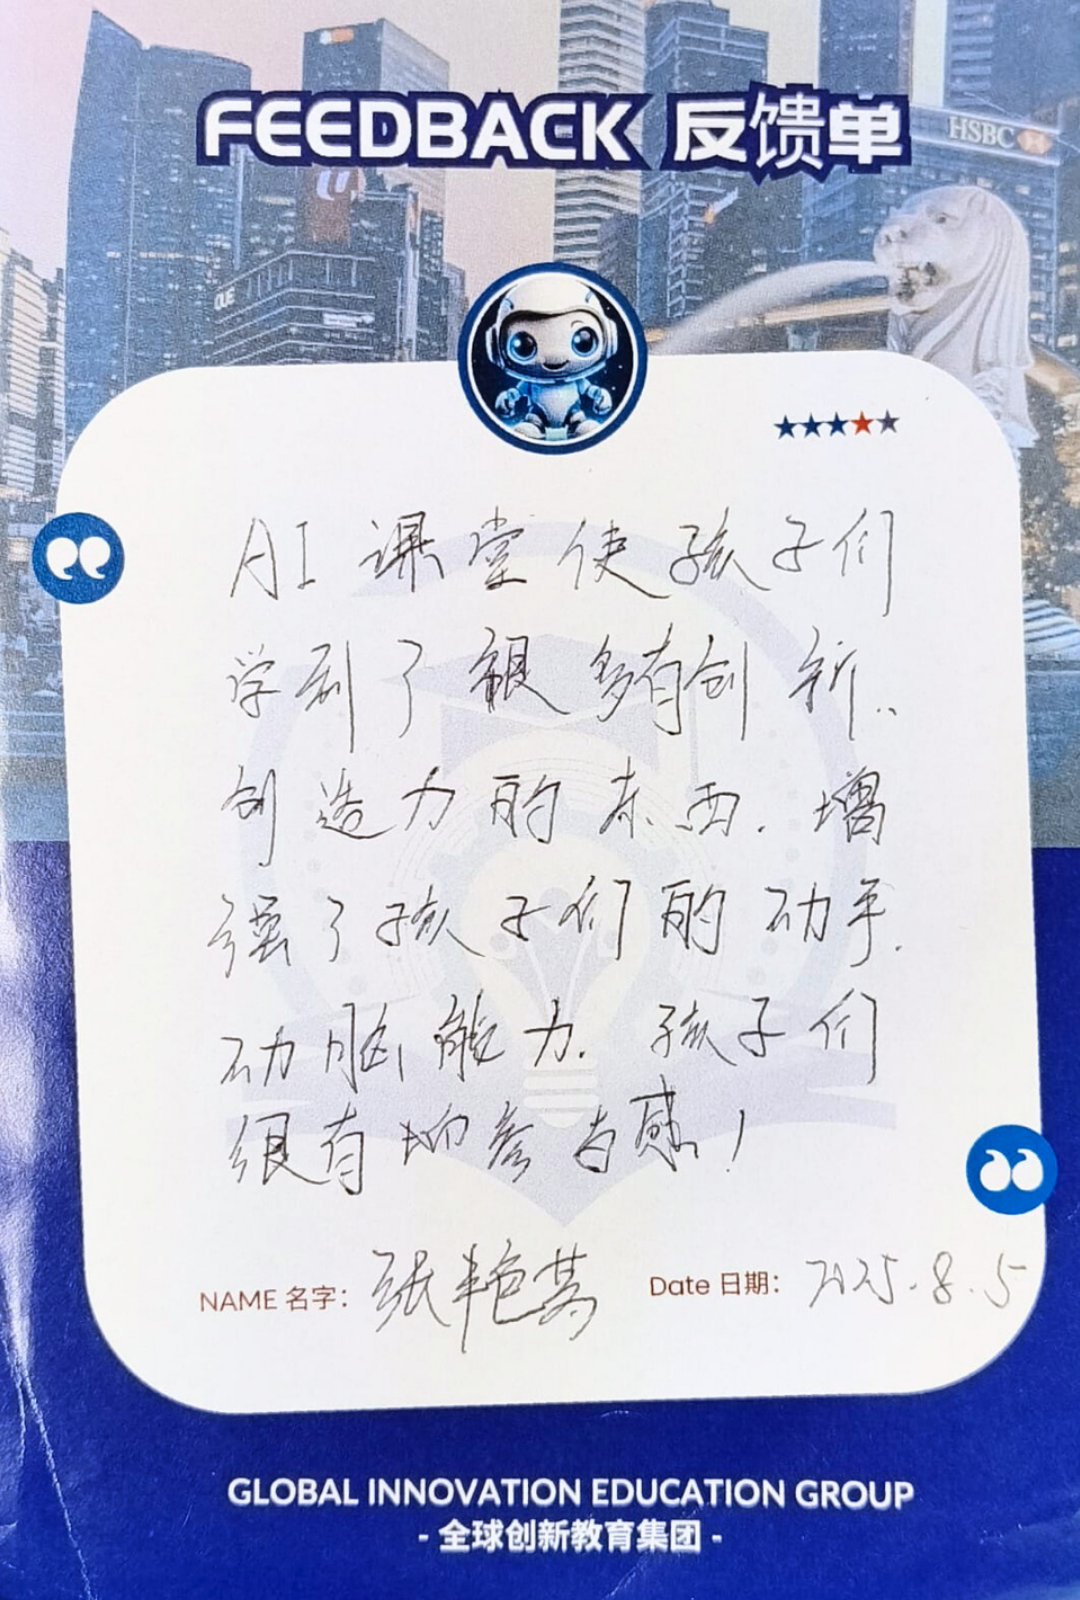 FEEDBACK 反馈单
HSBC
OUE
AI 课堂使孩子们
学到了很多有创新、
创造力的东西.增
强了孩子们的动手.
动脑能力.孩子们
很有的参与感!
NAME 名字: 张艳英
Date 日期: 2025.8.5
GLOBAL INNOVATION EDUCATION GROUP
- 全球创新教育集团 -